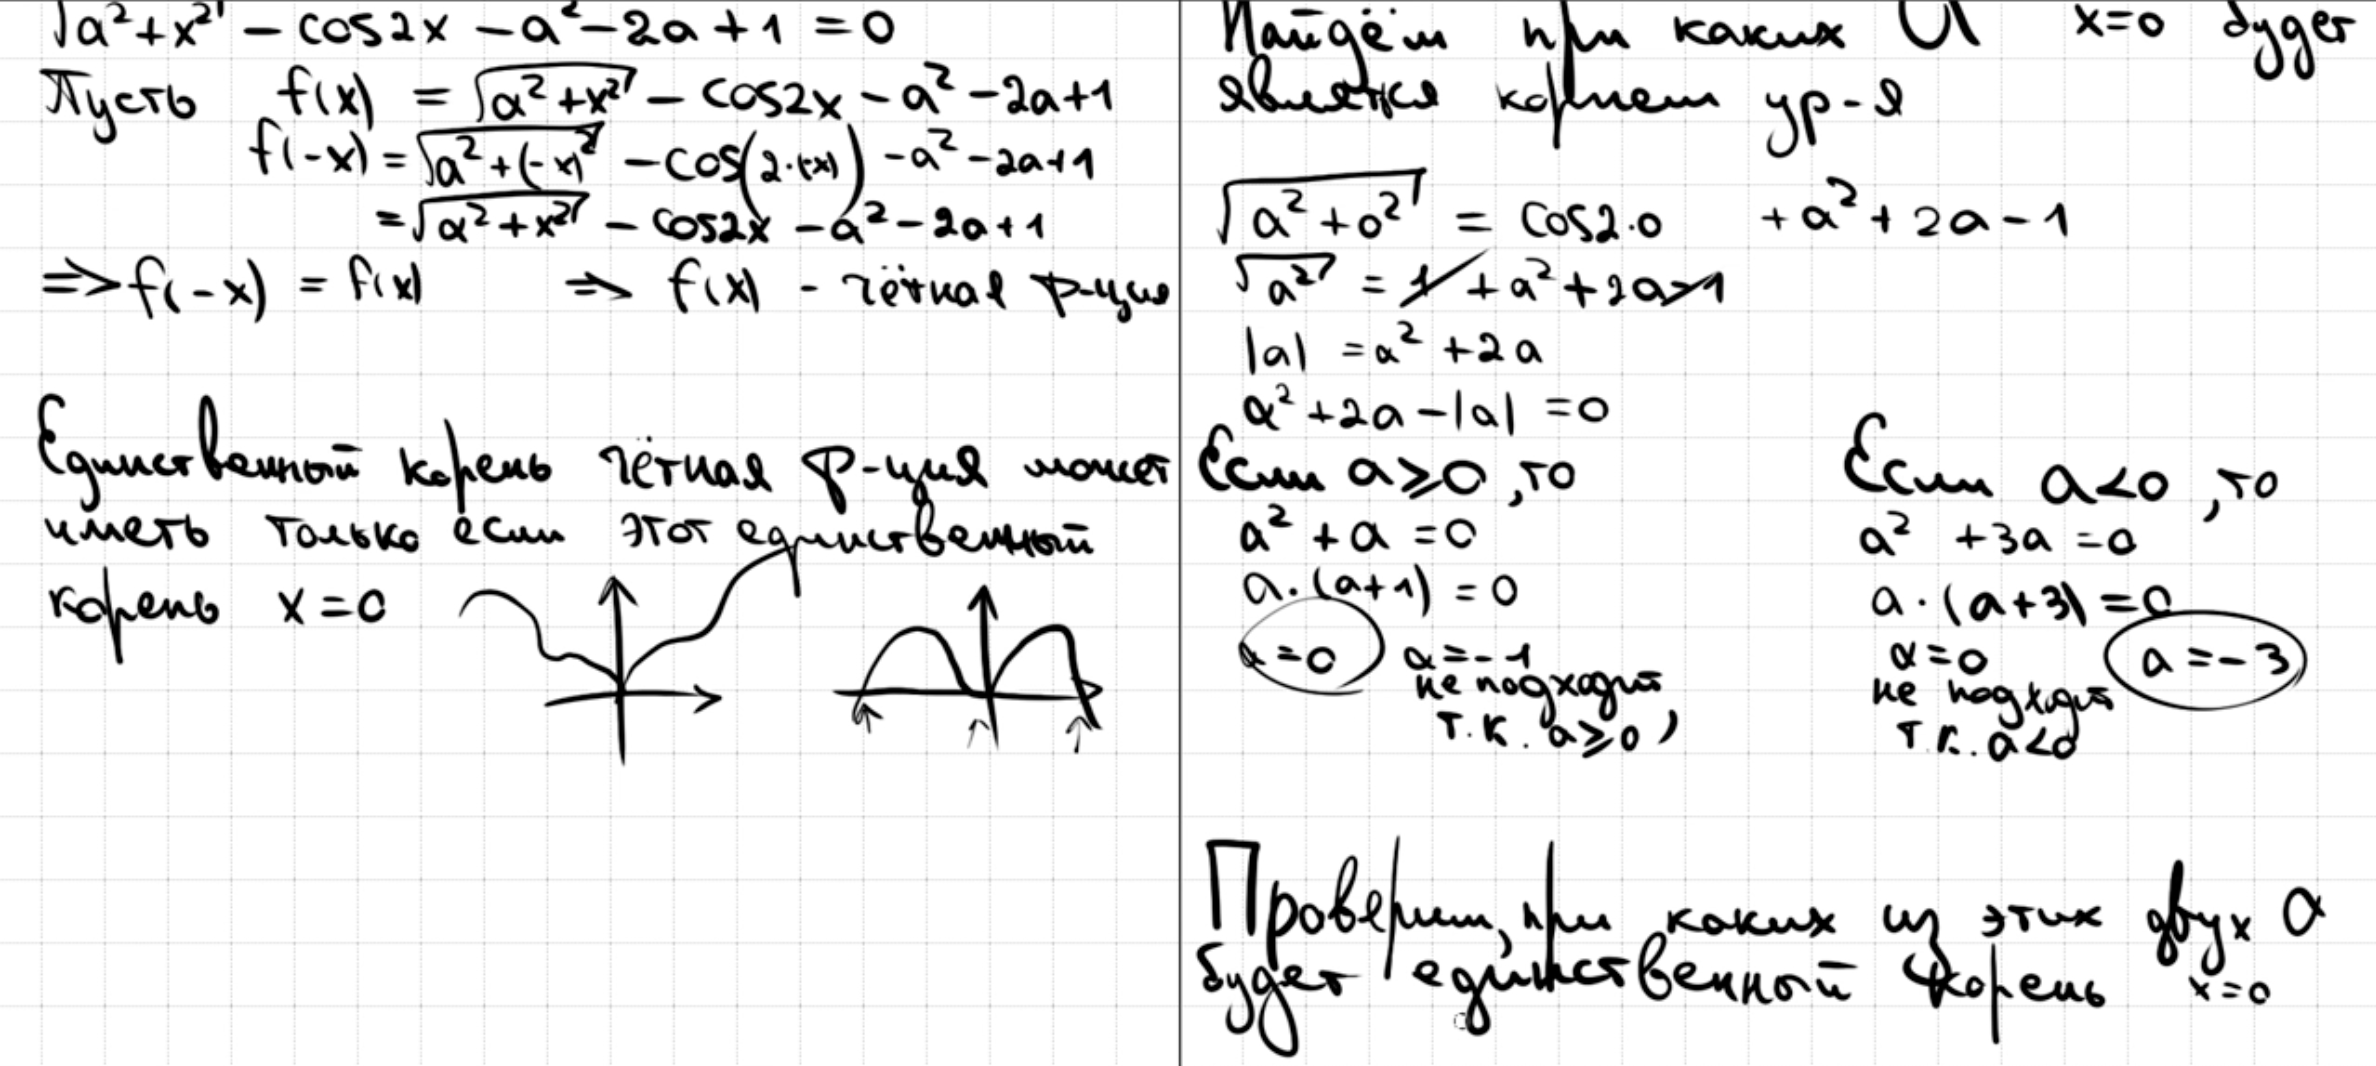 √a²+x² − cos2x − a² − 2a + 1 = 0
Пусть f(x) = √a²+x² − cos2x − a² − 2a + 1
f(-x) = √a²+(-x)² − cos(2·(-x)) − a² − 2a + 1
= √a²+x² − cos2x − a² − 2a + 1
=> f(-x) = f(x) => f(x) - чётная ф-ция
Единственный корень чётная ф-ция может
иметь только если этот единственный
корень x=0
Найдём при каких a x=0 будет
является корнем ур-я
√a²+0² = cos2·0 + a² + 2a − 1
√a² = 1 + a² + 2a − 1
|a| = a² + 2a
a² + 2a − |a| = 0
Если a≥0, то
a² + a = 0
a·(a+1) = 0
a=0 a=-1
не подходит
т.к. a≥0,
Если a<0, то
a² + 3a = 0
a·(a+3) = 0
a=0 a=-3
не подходит
т.к. a<0
Проверим, при каких из этих двух a
будет единственный корень x=0